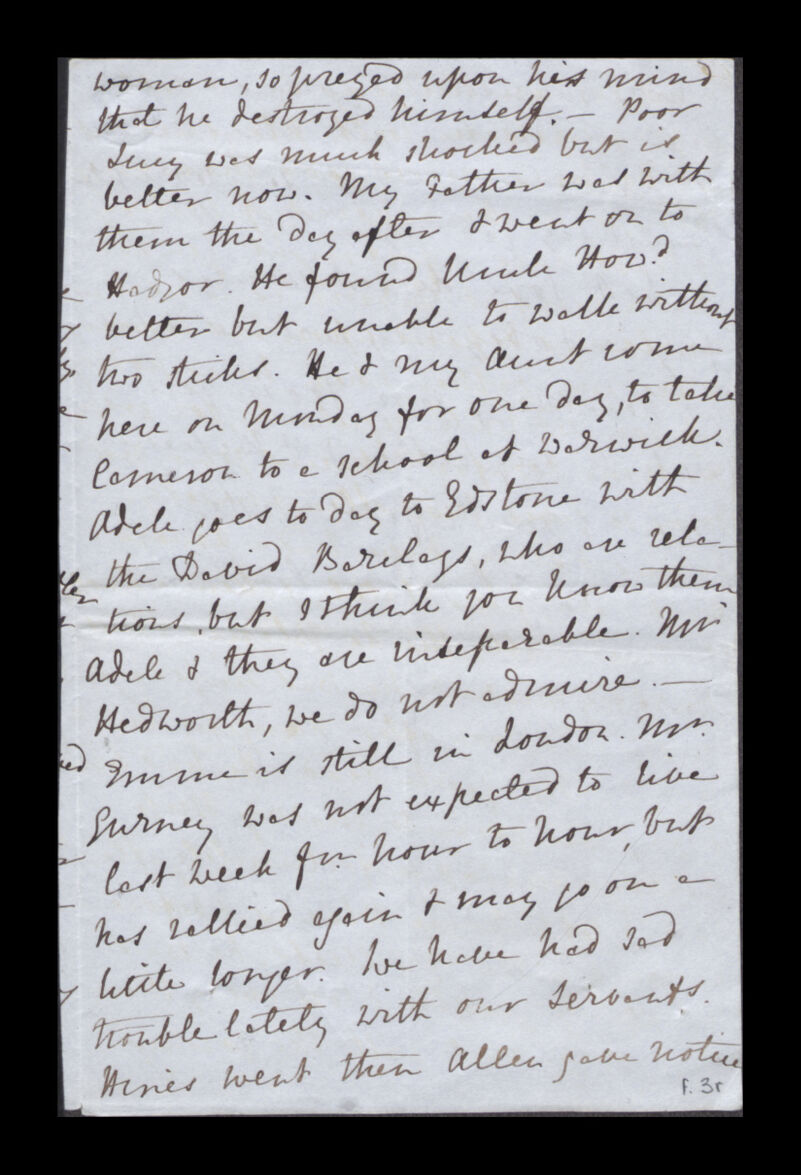 woman, so preyed upon his mind
that he destroyed himself. — Poor
Lucy was much shocked but is
better now. My Father was with
them the day after & went on to
Hadzor. He found Uncle How.d
better but unable to walk without
two sticks. He & my Aunt come
here on Monday for one day, to take
Cameron to a school at Warwick.
Adele goes to day to Edstone with
the David Barclays, who are rela-
tions, but I think you know them
Adele & they are inseparable. Mr
Hedworth, we do not admire. —
Emma is still in London. Mr.
Gurney was not expected to live
last week from hour to hour, but
has rallied again & may go on a
little longer. We have had sad
trouble lately with our Servants.
went then Allen gave notice
f. 3r